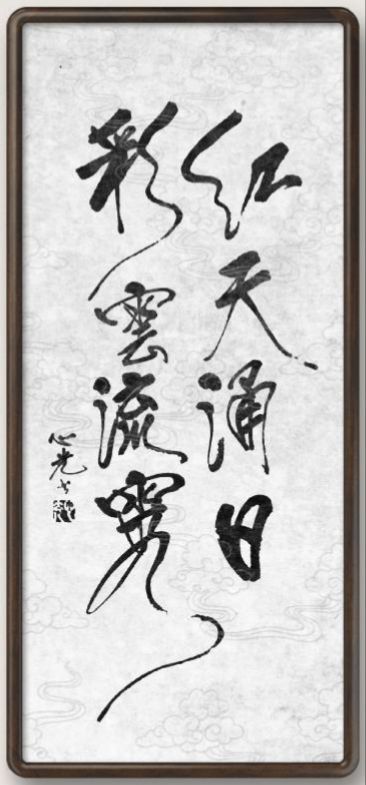 红天涌日
彩雲流霞
心光书